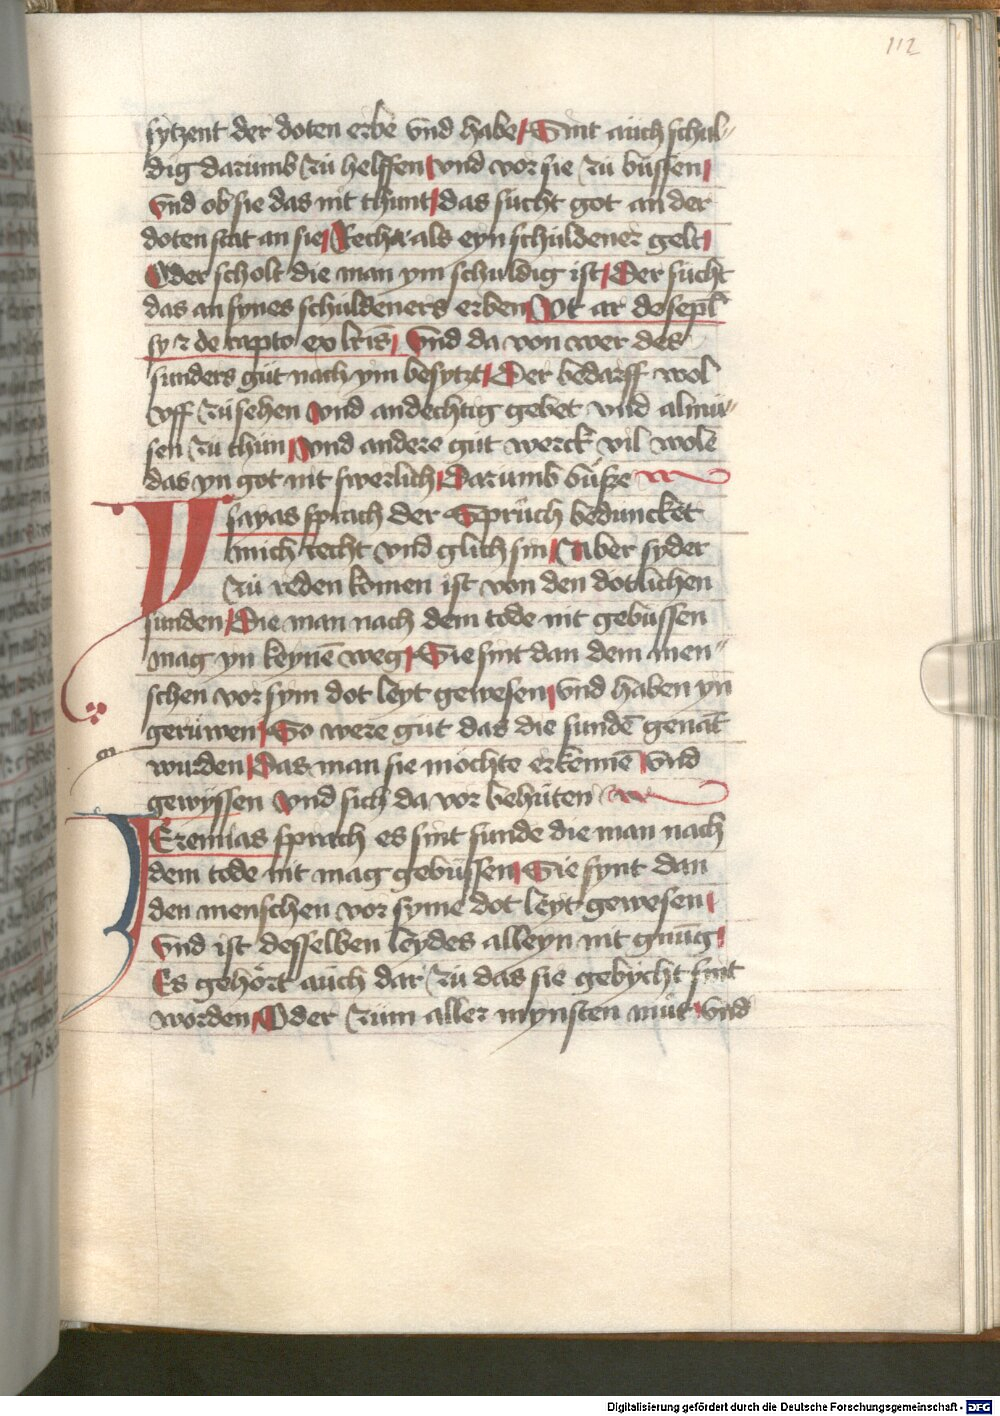 112
sytzent der doten erbe vnd habe Sint auch schul-
dig darumb zu helffen vnd vor sie zu büssen
vnd ob sie das nit thunt das sücht got an der
doten stat an sie Recht als eyn schuldener gelt
Oder scholt die man ym schuldig ist Der sücht
das an synes schuldeners erben Vt ar de sepl
sy z de rapto ex lris Vnd da von wer des
sunders güt nach ym besytzt Der bedarff wol
vff zu sehen vnd andechtig gebet vnd almü-
sen zu thun vnd andere güt werck vil wolē
das yn got nit swerlich Darumb büsze
Ysayas sprach der Sprüch beduncket
mich recht vnd glich sin Aber syder
zü reden komen ist von den dotlichen
sunden Die man nach dem tode nit gebüssen
mag yn keynē weg Sie sint dan dem men-
schen vor sym dot leyt gewesen vnd haben yn
gerüwen So were güt das die sundē genāt
wurden Das man sie möchte erkennē vnd
gewyssen vnd sich da vor behüten
JEremias sprach es sint sunde die man nach
dem tode nit mag gebüssen Sie synt dan
den menschen vor syme dot leyt gewesen
Vnd ist desselben leydes alleyn nit gnüg
Es gehört auch dar zü das sie gebycht sint
worden Oder züm aller mynsten müt vnd
Digitalisierung gefördert durch die Deutsche Forschungsgemeinschaft - DFG